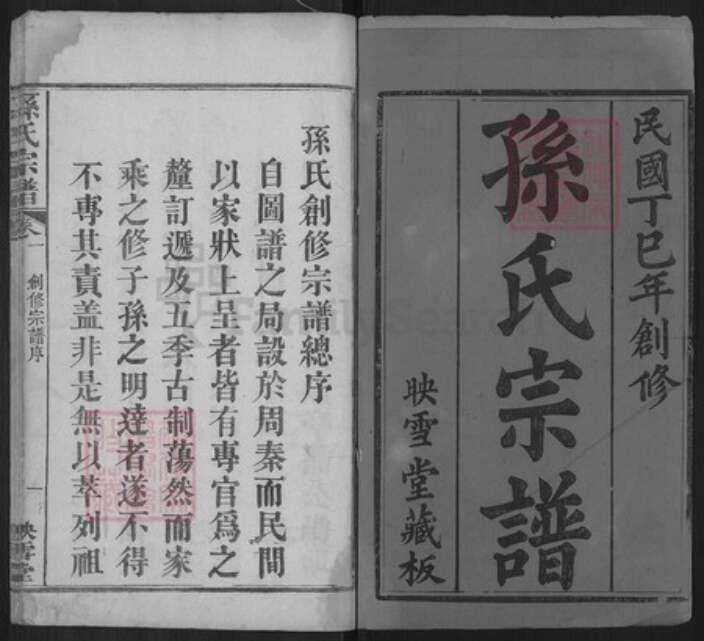 民國丁巳年創修
孫氏宗譜
映雪堂藏板
孫氏創修宗譜總序
自圖譜之局設於周秦而民間
以家狀上呈者皆有專官爲之
釐訂遞及五季古制蕩然而家
乘之修子孫之明達者遂不得
不專其責蓋非是無以萃列祖
孫氏宗譜
卷一
創修宗譜序
一
映雪堂
FamilySearch